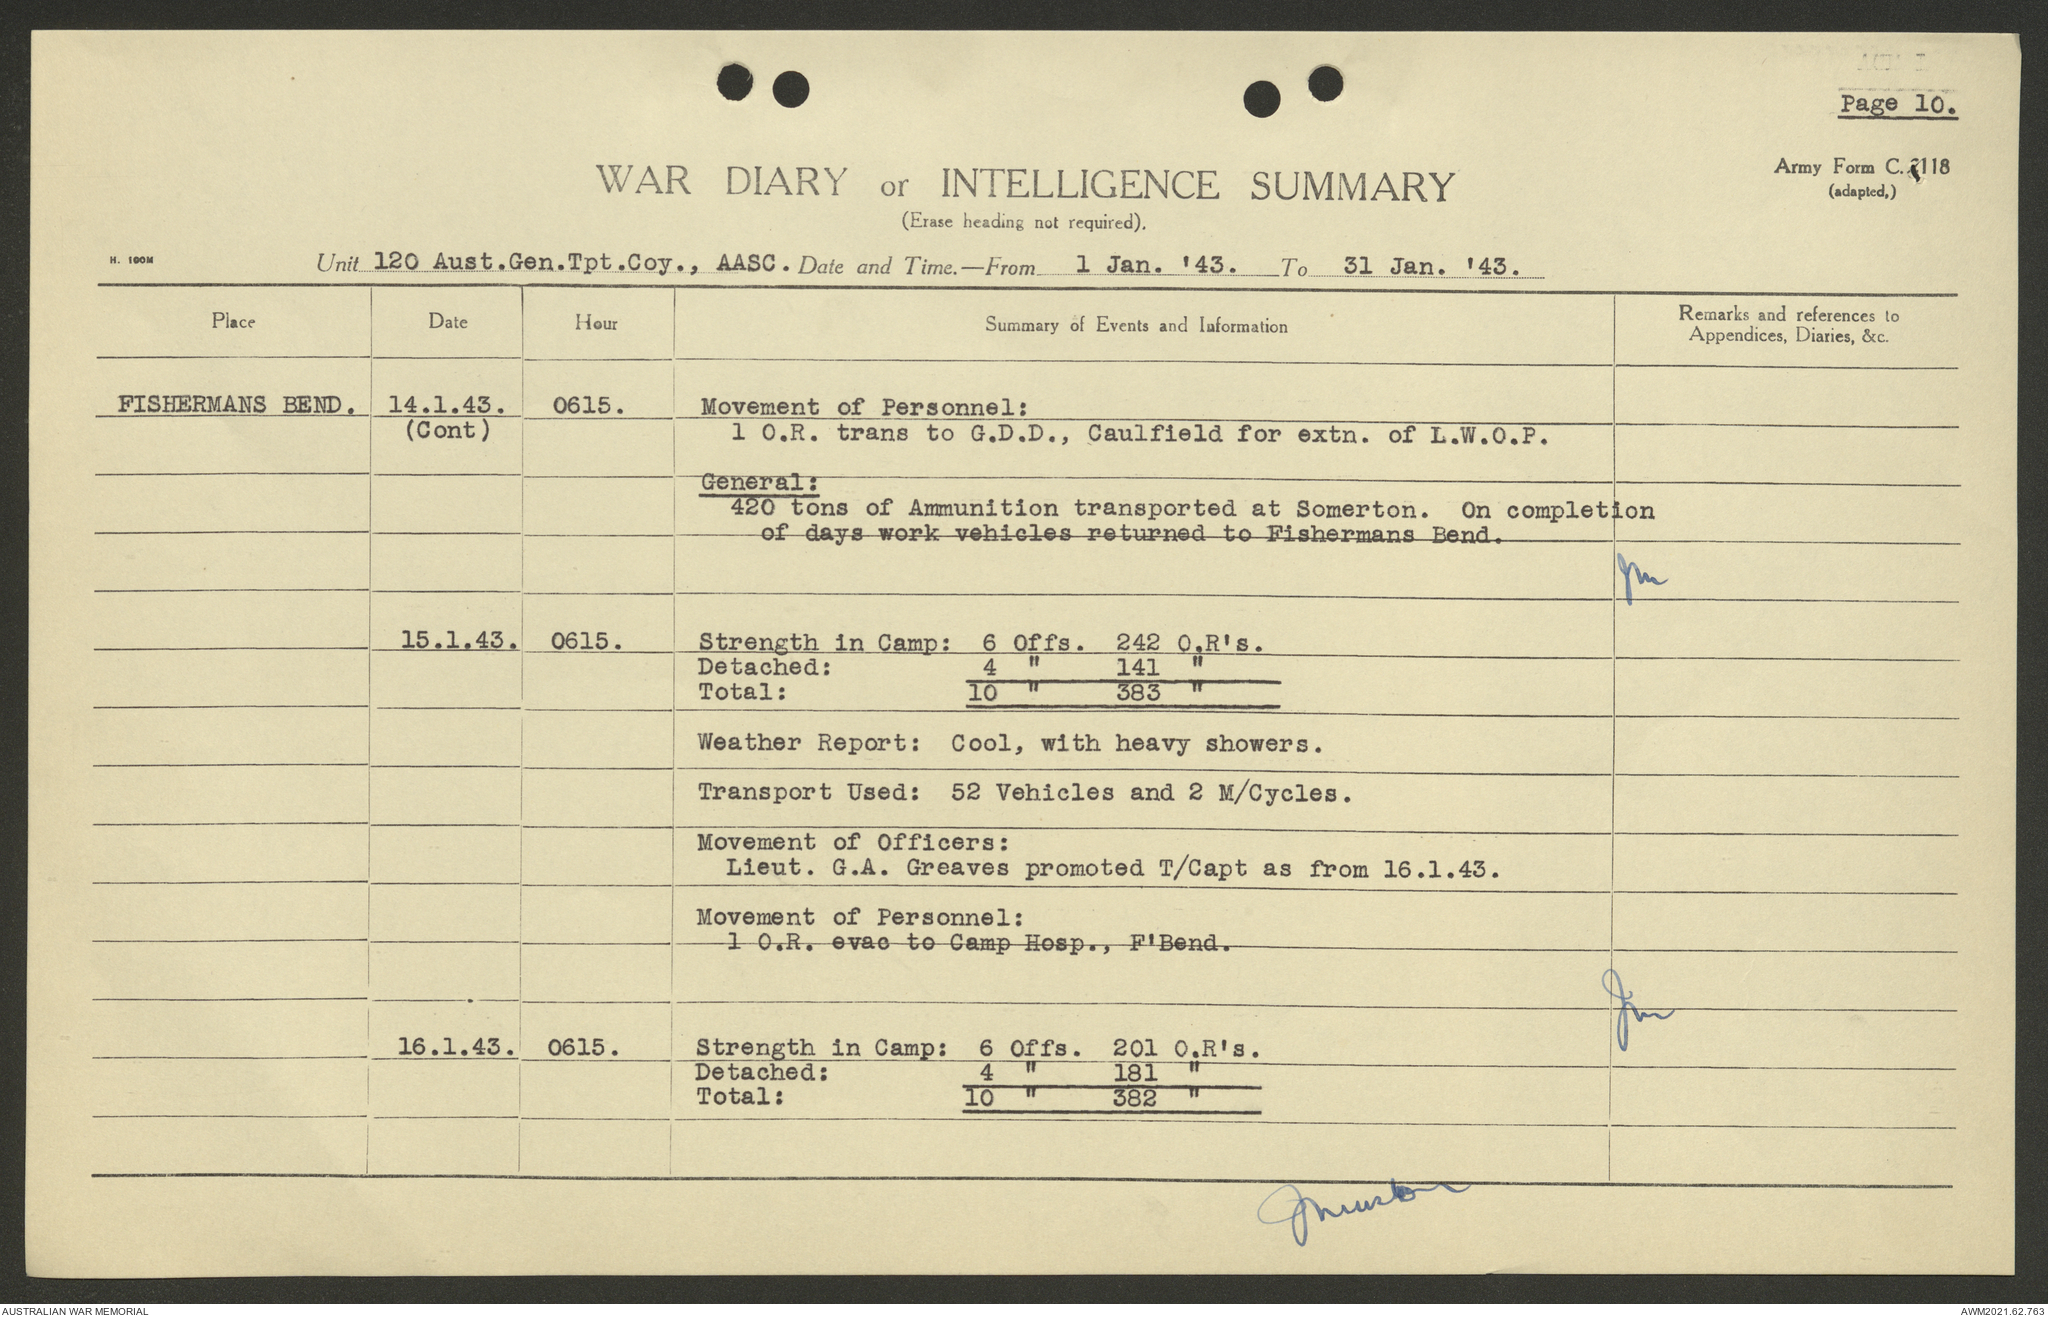 Page 10.
Army Form C. 2118
(adapted,)
WAR DIARY or INTELLIGENCE SUMMARY
(Erase heading not required).
H. 100M
Unit 120 Aust.Gen.Tpt.Coy., AASC. Date and Time.—From 1 Jan. '43. To 31 Jan. '43.
Place Date Hour Summary of Events and Information Remarks and references to
Appendices, Diaries, &c.
FISHERMANS BEND. 14.1.43. 0615. Movement of Personnel:
(Cont) 1 O.R. trans to G.D.D., Caulfield for extn. of L.W.O.P.
General:
420 tons of Ammunition transported at Somerton. On completion
of days work vehicles returned to Fishermans Bend.
Jm
15.1.43. 0615. Strength in Camp: 6 Offs. 242 O.R's.
Detached: 4 " 141 "
Total: 10 " 383 "
Weather Report: Cool, with heavy showers.
Transport Used: 52 Vehicles and 2 M/Cycles.
Movement of Officers:
Lieut. G.A. Greaves promoted T/Capt as from 16.1.43.
Movement of Personnel:
1 O.R. evac to Camp Hosp., F'Bend.
Jm
16.1.43. 0615. Strength in Camp: 6 Offs. 201 O.R's.
Detached: 4 " 181 "
Total: 10 " 382 "
AUSTRALIAN WAR MEMORIAL
AWM2021.62.763